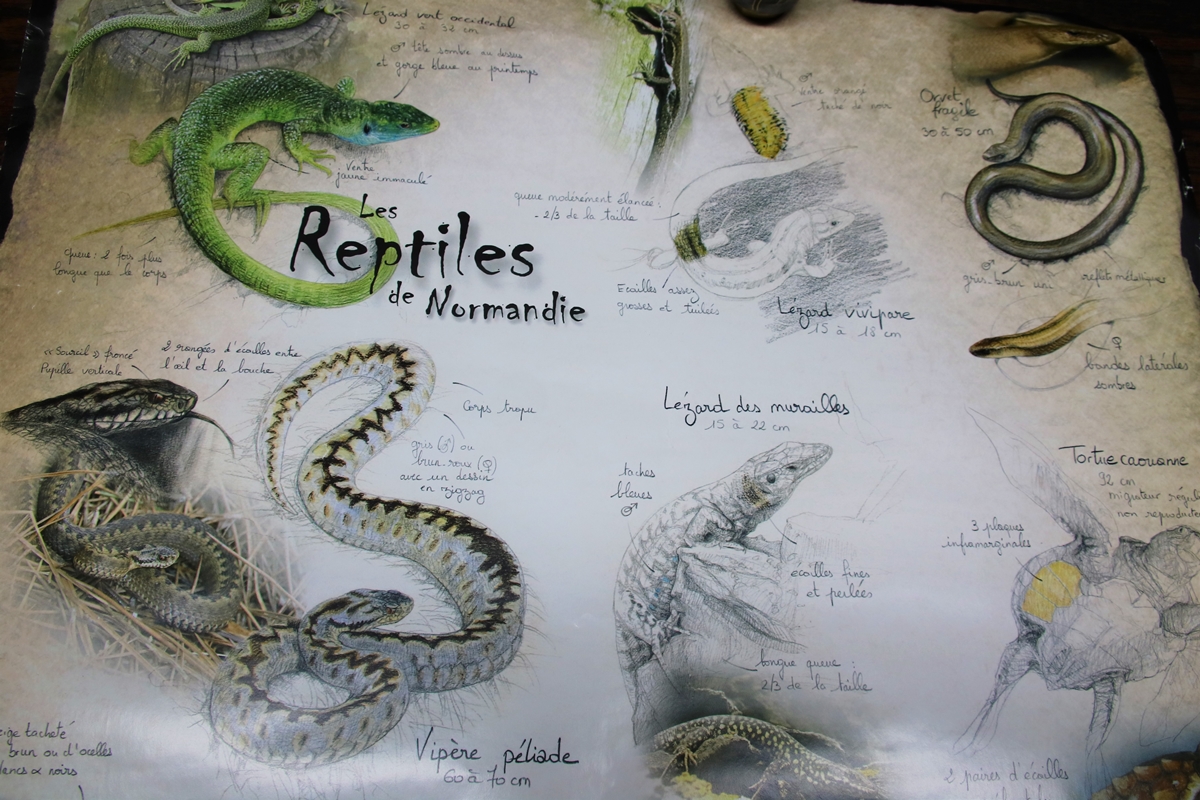 Lézard vert occidental
30 à 32 cm
♂ tête sombre au dessus
et gorge bleue au printemps
ventre
jaune immaculé
Les
Reptiles
de Normandie
queue : 2 fois plus
longue que le corps
♂
ventre orangé
taché de noir
queue modérément élancée :
- 2/3 de la taille
Ecailles assez
grosses et
Lézard vivipare
15 à 18 cm
Orvet
fragile
30 à 50 cm
♂
gris-brun uni
reflets métalliques
♀
bandes latérales
sombres
« Sourcil » froncé
Pupille verticale
2 rangées d'écailles entre
l'œil et la bouche
Corps trapu
gris (♂) ou
brun-roux (♀)
avec un dessin
en zigzag
Vipère péliade
60 à 70 cm
Lézard des murailles
15 à 22 cm
taches
bleues
♂
écailles fines
et perlées
longue queue :
2/3 de la taille
Tortue caouanne
92 cm
migrateur
non
3 plaques
inframarginales
2 paires d'écailles
tacheté
brun ou d'ocelles
noirs